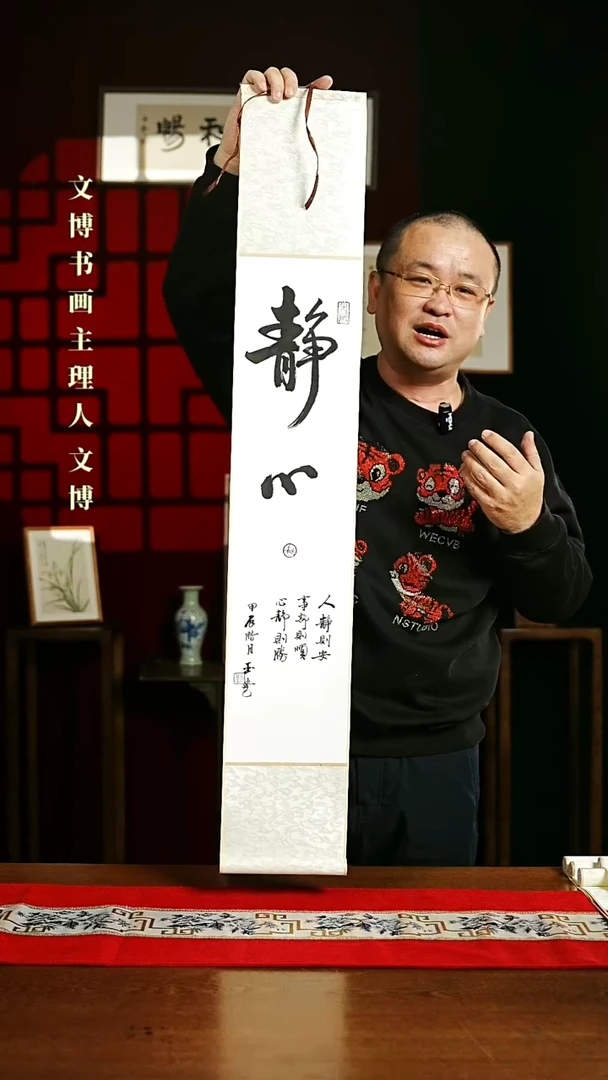 文博书画主理人文博
静
心
人静则安
事静则顺
心静则勝
甲辰腊月
WECVB
NSTUDIO